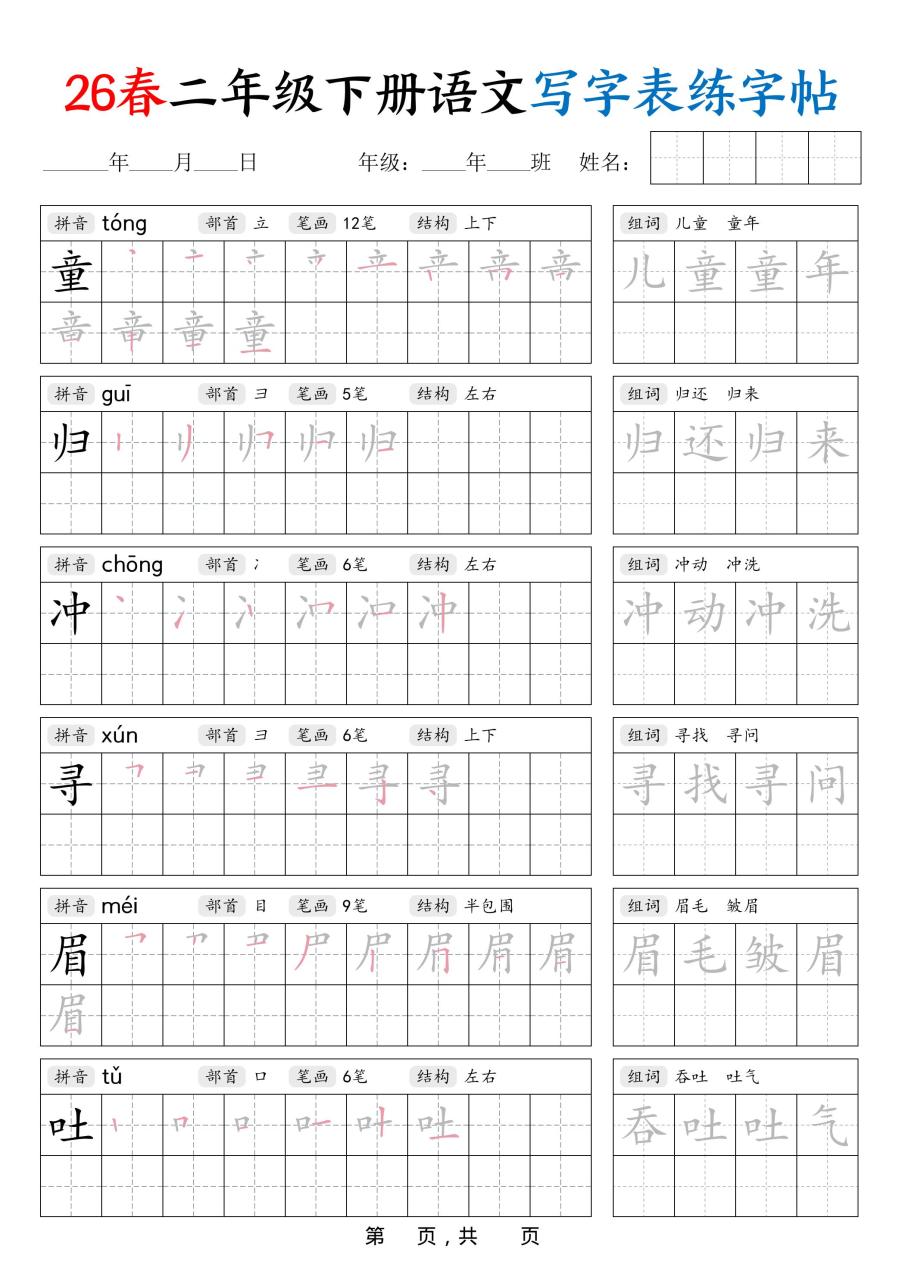 26春二年级下册语文写字表练字帖
______年____月____日 年级：____年____班 姓名：
拼音 tóng 部首 立 笔画 12笔 结构 上下
童
童
组词 儿童 童年
儿童童年
拼音 guī 部首 彐 笔画 5笔 结构 左右
归
组词 归还 归来
归还归来
拼音 chōng 部首 冫 笔画 6笔 结构 左右
冲
组词 冲动 冲洗
冲动冲洗
拼音 xún 部首 彐 笔画 6笔 结构 上下
寻
组词 寻找 寻问
寻找寻问
拼音 méi 部首 目 笔画 9笔 结构 半包围
眉
眉
组词 眉毛 皱眉
眉毛皱眉
拼音 tǔ 部首 口 笔画 6笔 结构 左右
吐
组词 吞吐 吐气
吞吐吐气
第 页，共 页